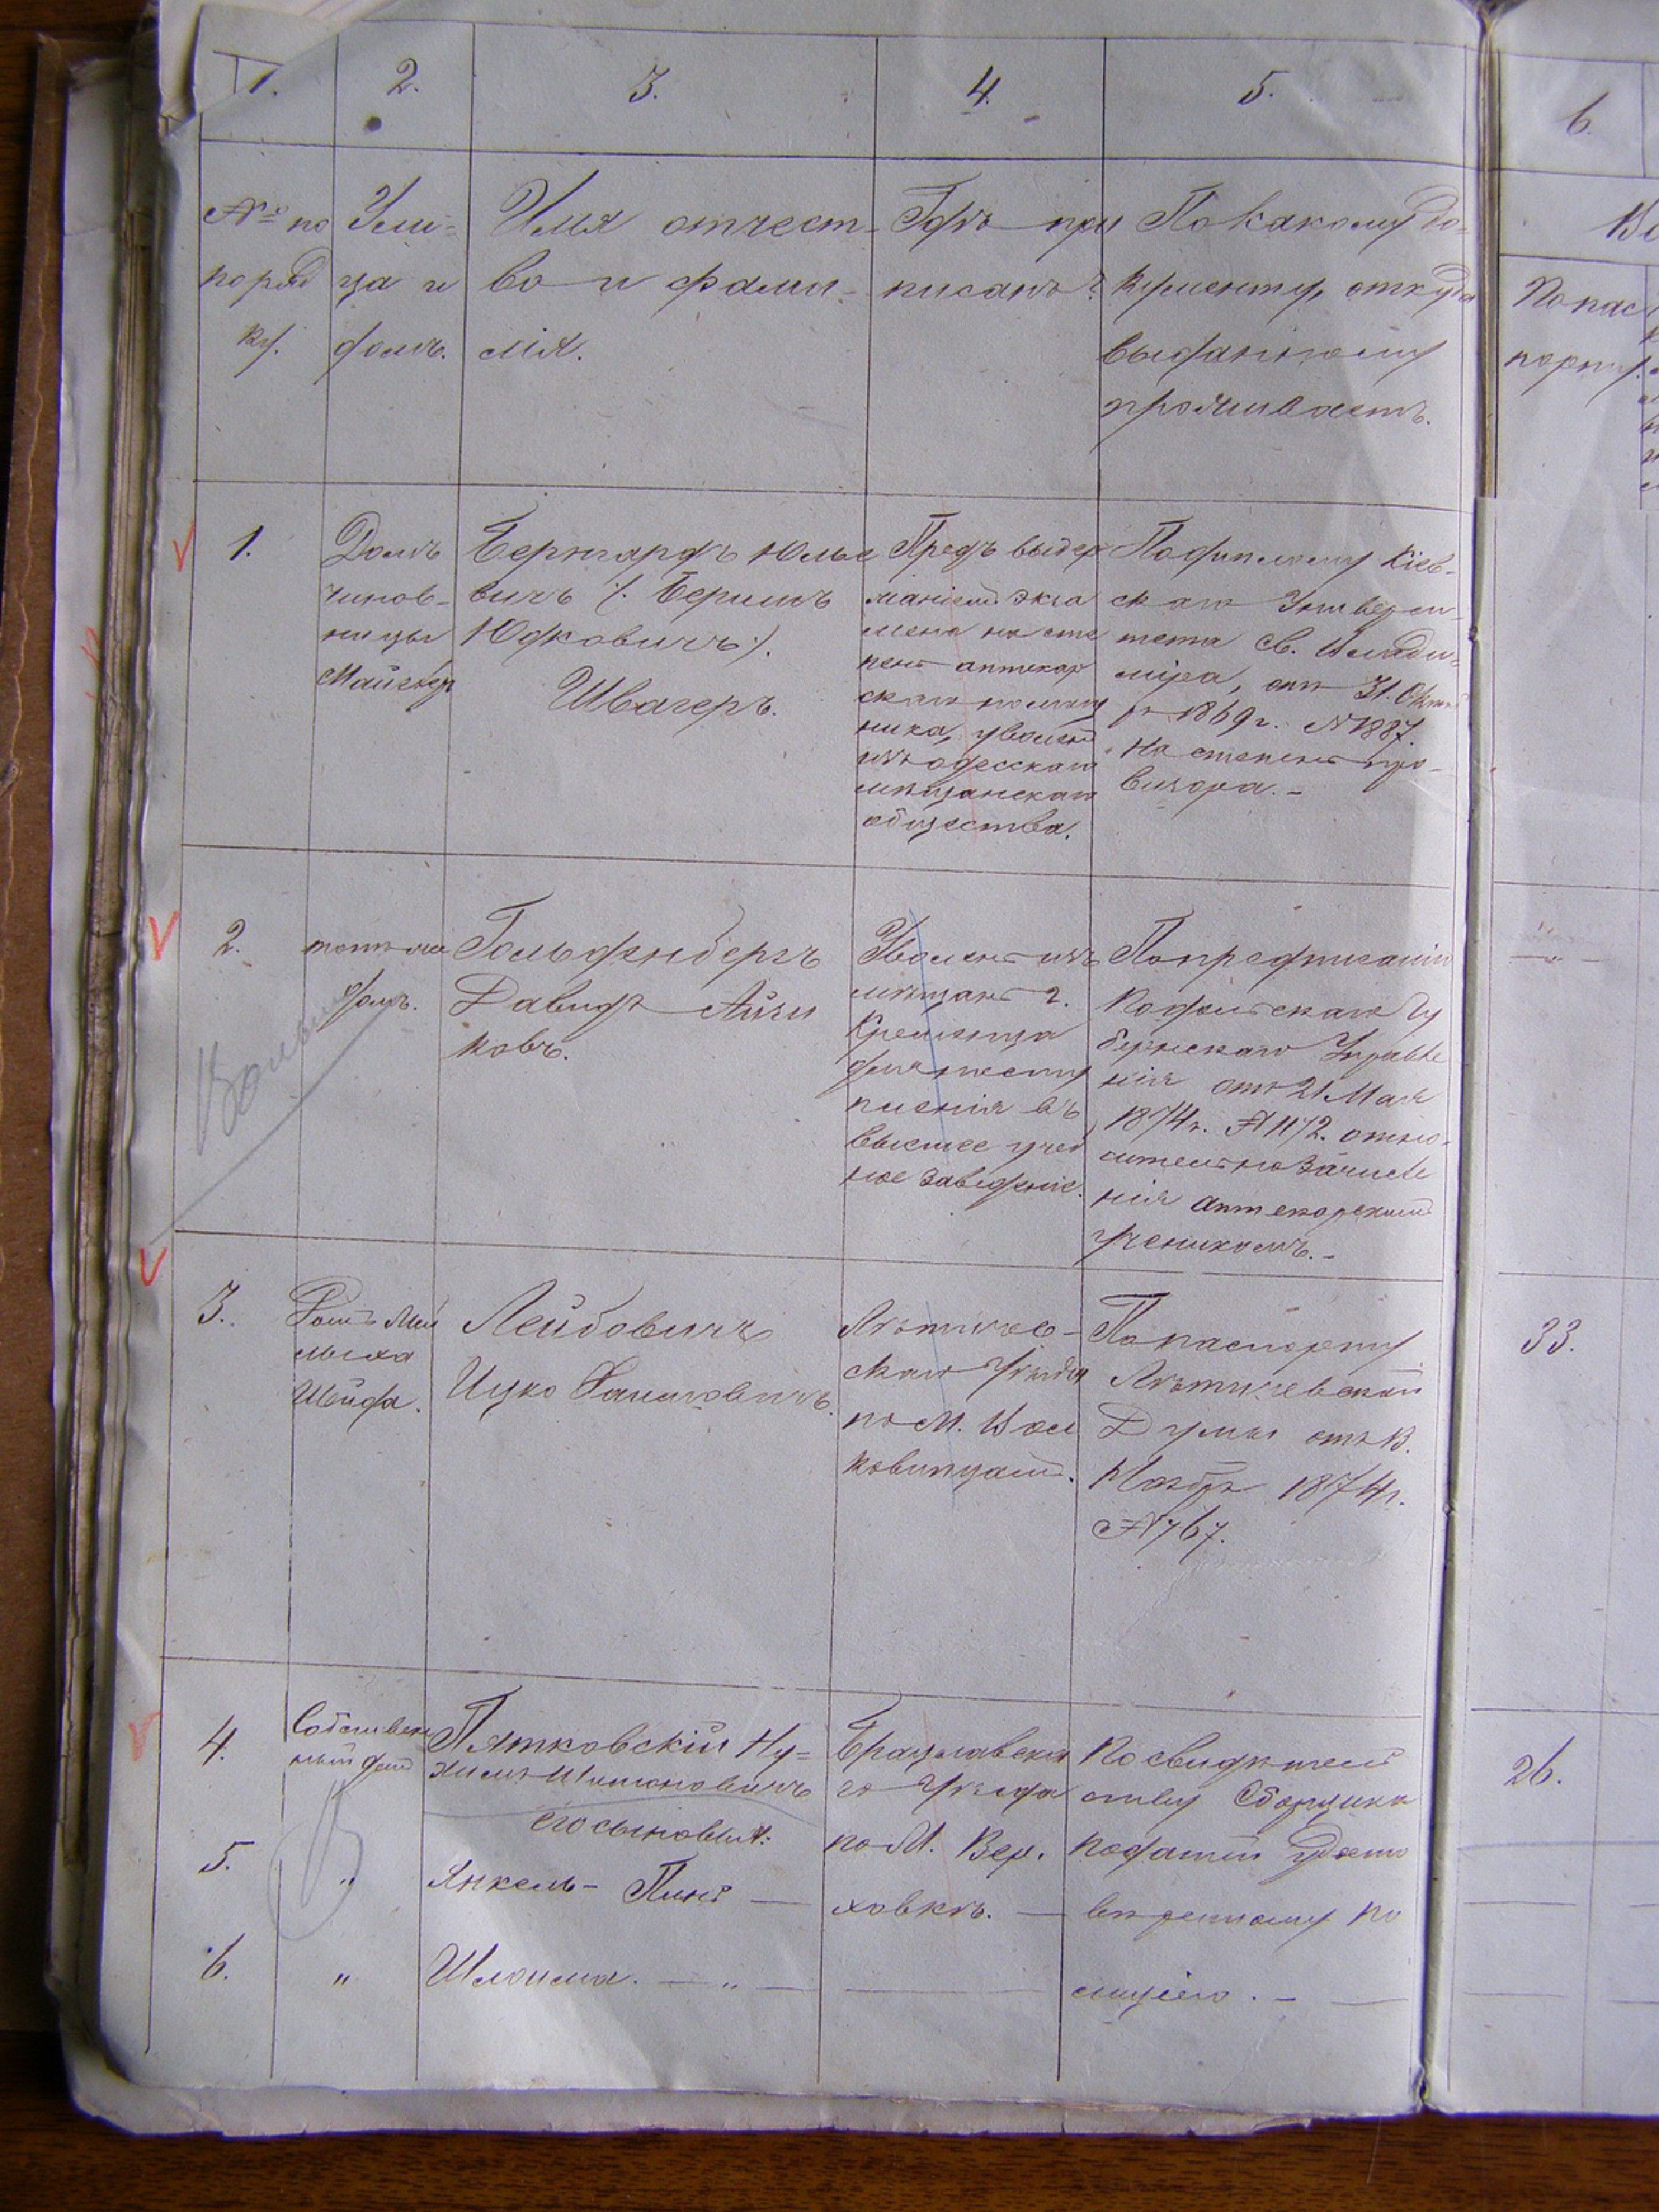 1.
2.
3.
4.
5.
№ по
поряд
ку.
Ули=
ца и
домъ.
Имя отчест-
во и фами-
лія.
Гдѣ при
писанъ?
По какому до-
кументу, откуда
выданному
проживаетъ.
1.
Домъ
чинов-
ницы
Бернардъ Юлье
вичъ (: Беришъ
Юдковичъ:).
Швагеръ.
Предъ выдер
маніемъ экза
мена на сте
пень аптекар
скаго помощ
ника, уволенъ
изъ одесскаго
мѣщанскаго
общества.
По диплому Кіев-
скаго Универси-
тета св. Влади-
міра, отъ 31. Октяб
ря 1869 г. № 1887.
На степень про-
визора. -
2.
тотъ же
домъ.
Гольденбергъ
Давидъ Айзи
ковъ.
Уволенъ изъ
мѣщанъ г.
Кременца
для поступ
ленія въ
высшее учеб
ное заведеніе.
По предписанію
Подольскаго Гу
бернскаго Управле
нія отъ 21 Мая
1874 г. № 1172. отно-
сительно зачисле
нія аптекарскимъ
ученикомъ. -
3.
Домъ Мей
Шейда.
Лейбовичъ
Ицко
Лѣтичев-
скаго уѣзда
по М. Вол
ковинцамъ.
По паспорту
Лѣтичевской
Думы отъ 13.
Ноября 1874 г.
№ 767.
4.
Собствен
ный домъ
Пятковскій Ну=
химъ Шимоновичъ
его сыновья:
Брацлавска
го уѣзда
по М. Вер.
ховкѣ. —
По свидѣтель
ству Сборщика
податей удосто
вѣренному по
лиціею. - —
5.
"
Янкель - Пинъ —
6.
"
Шлоима. — " —
6
Вс
По пас
порту.
33.
26.